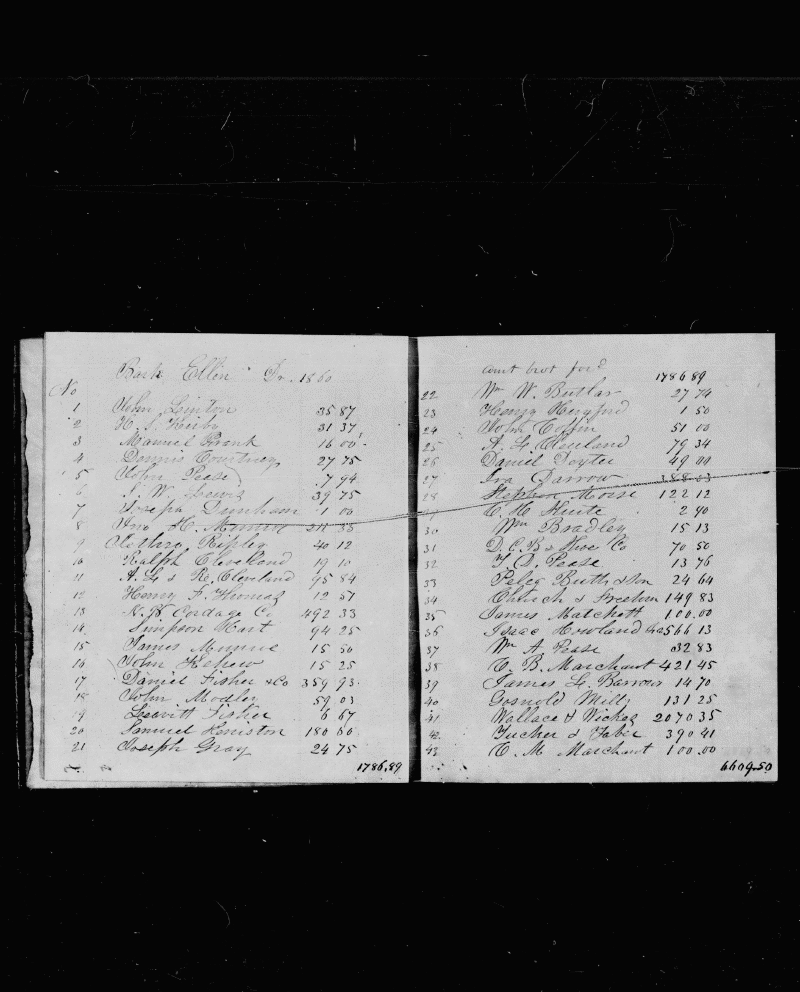 Bark Ellen Dr. 1860
No
1 John Linton 35 87
2 H. S. Kirby 31 37
3 Manuel Frank 16 00
4 Dennis Courtney 27 75
5 John Pease 7 94
6 Lewis 39 75
7 Joseph Dunham 1 00
8 H. Munroe 33
9 Ripley 40 12
10 Ralph Cleveland 19 10
11 A. G. & R. Cleveland 95 84
12 Henry F. Thomas 12 57
13 N. B. Cordage Co 492 33
14 Simpson Hart 94 25
15 James Munroe 15 50
16 John 15 25
17 Daniel Fisher & Co 359 93
18 John 59 03
19 Leavitt Fisher 6 67
20 Samuel Keniston 180 60
21 Joseph Gray 24 75
1786.89
amt brot for'd
1786 89
22 Wm W. Butler 27 74
23 Henry 1 50
24 John Coffin 51 00
25 79 34
26 Daniel 49 00
27 Ira Darrow
28 Stephen Morse 122 12
C. H. 2 90
30 Wm Bradley 15 13
31 D. C. B & Shoe Co 70 50
32 Pease 13 76
33 Peleg & Son 24 64
34 Church & 149 83
35 James Matchett 100.00
36 Isaac Howland 566 13
37 Wm A Pease 32 83
38 C. B. Marchant 421 45
39 James L. Barrows 14 70
40 Gosnold Mills 131 25
41 Wallace & 2070 35
42 Tucker & Taber 390 41
43 C. M. Marchant 100.00
6609.50